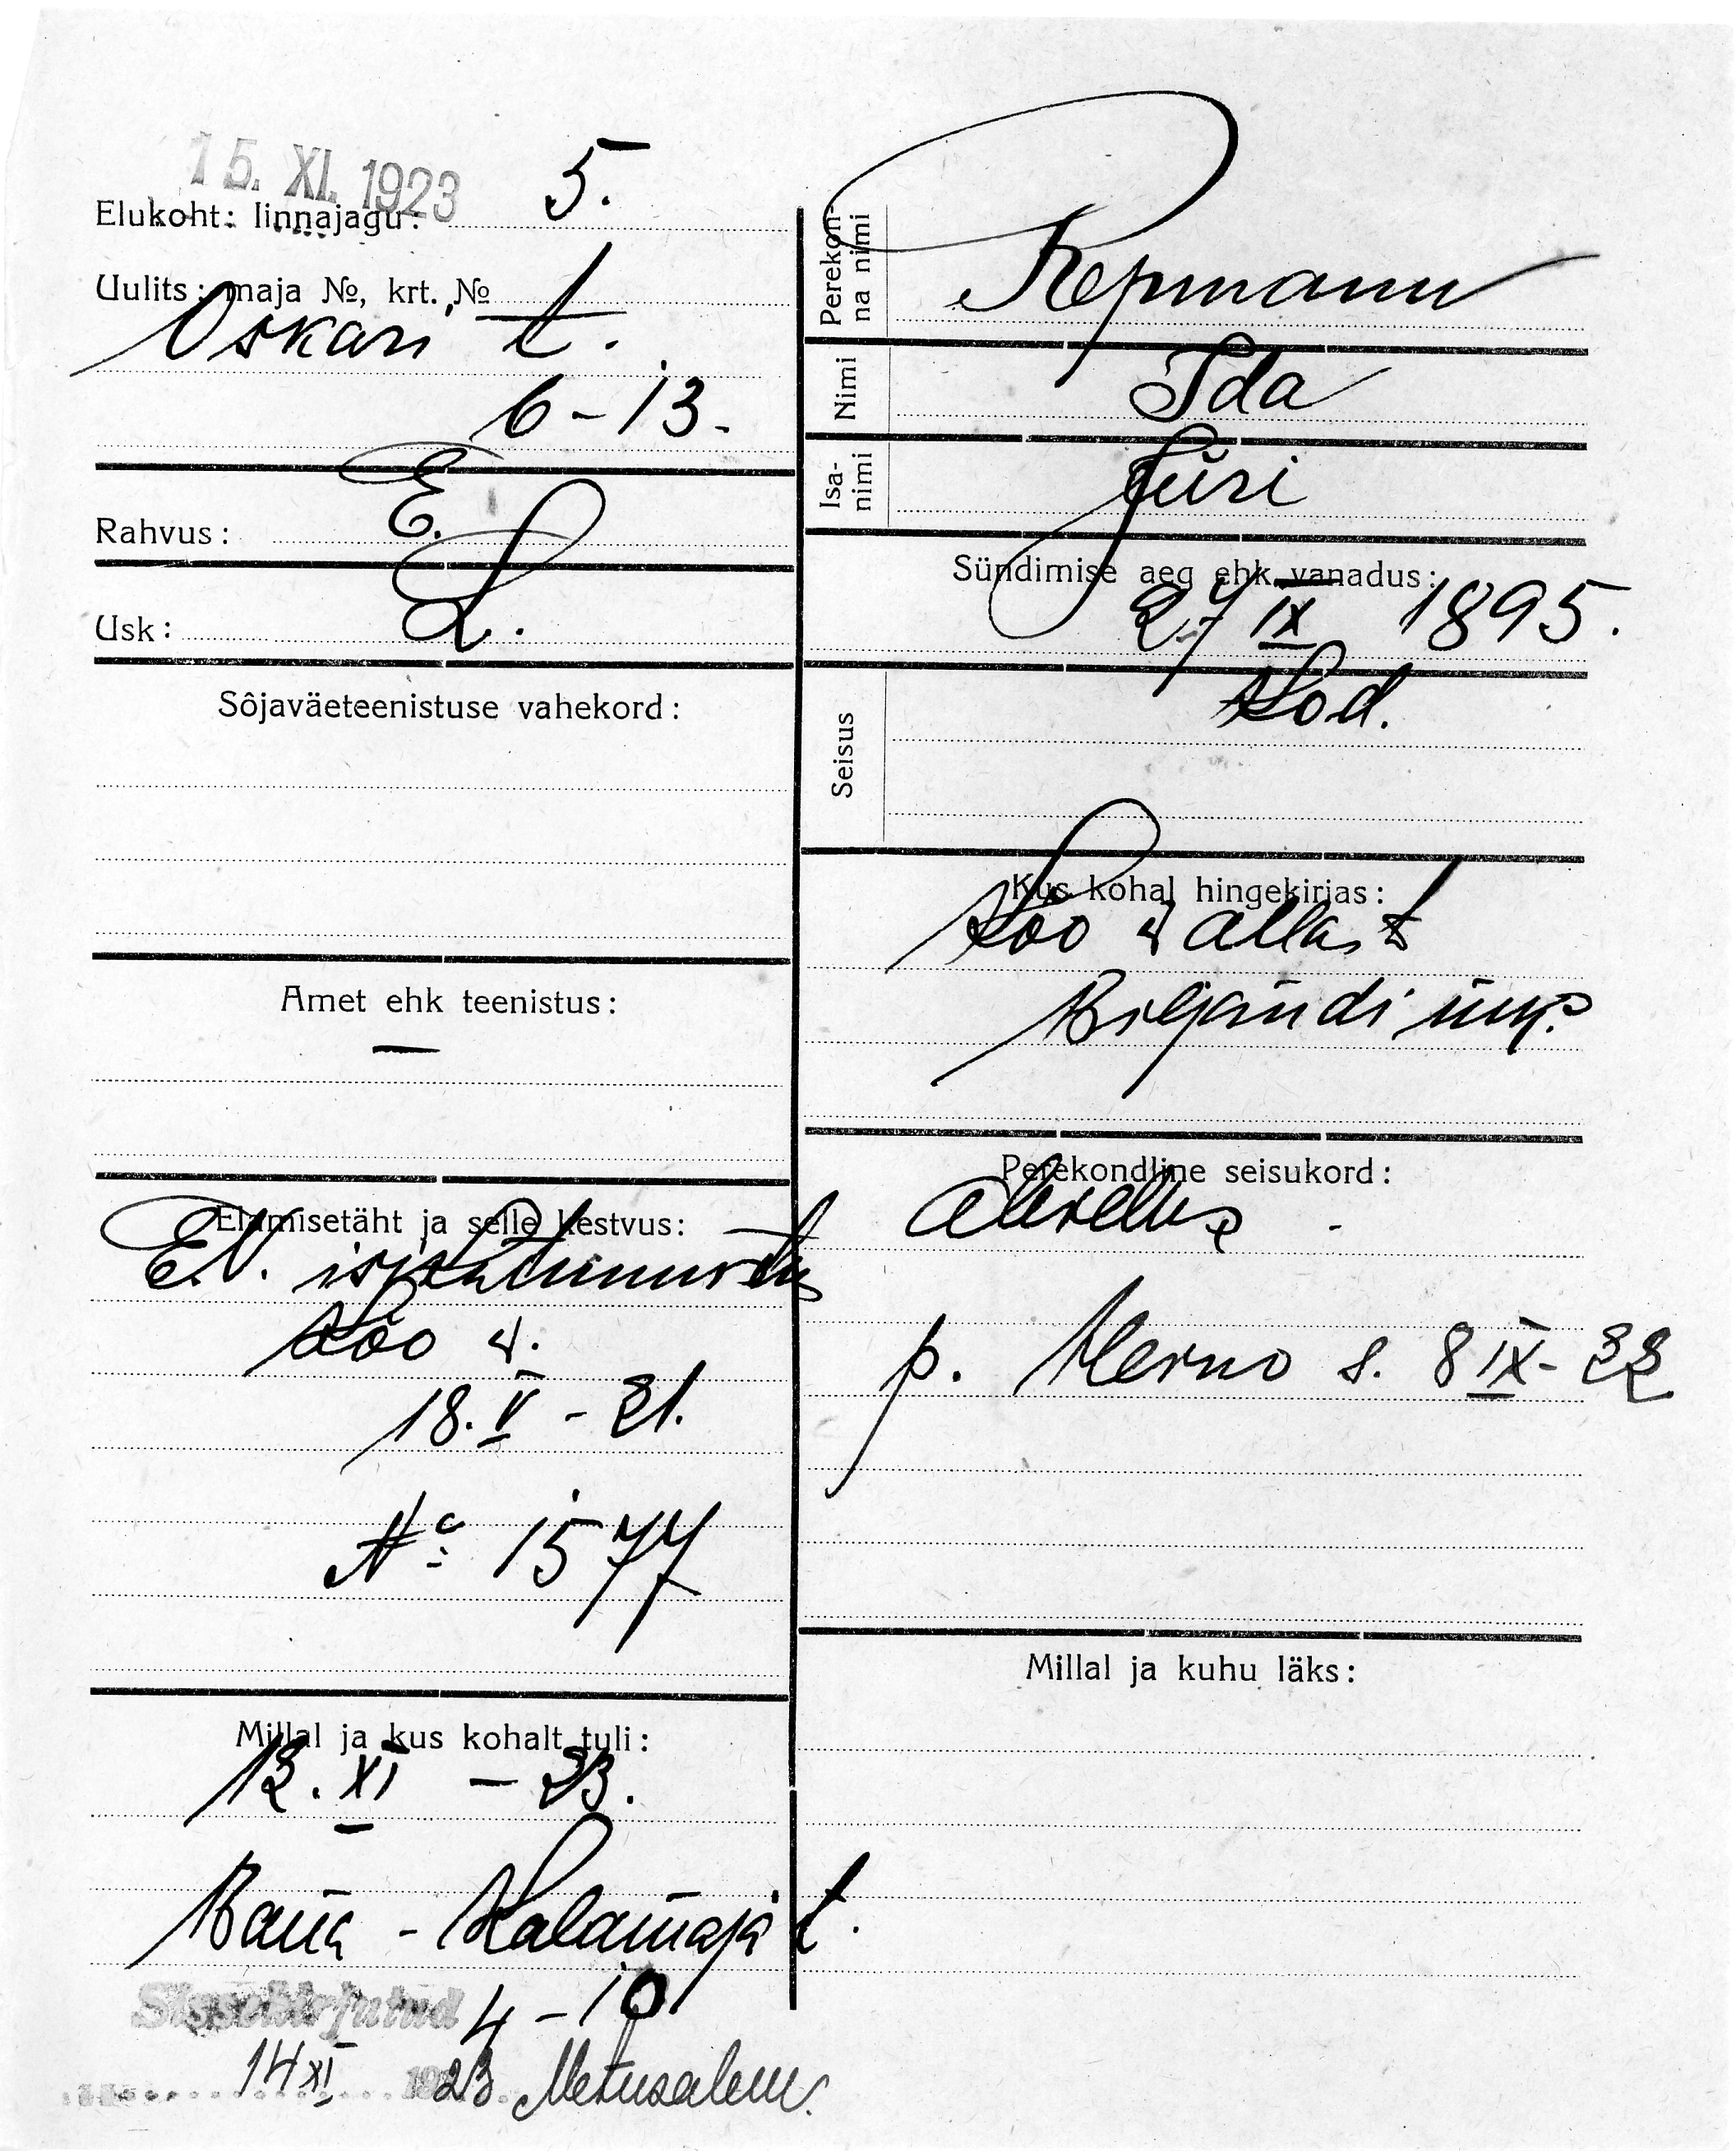 15. XI. 1923
Elukoht: linnajagu: 5.
Uulits: maja №, krt. №
Oskari t.
6-13.
Rahvus: E.
Usk: L.
Sôjaväeteenistuse vahekord:
Amet ehk teenistus:
—
Elamisetäht ja selle kestvus:
E.V. isikutunnistus
Kõo v.
18. V - 21.
№ 1577
Millal ja kus kohalt tuli:
12. XI - 23.
Vana-Kalamaja t.
4-10
Sissekirjutud
14 XI 1923. Metusalem.
Perekonna nimi
Repmann
Nimi
Ida
Isanimi
Jüri
Sündimise aeg ehk vanadus:
27 IX 1895.
Seisus
Kod.
Kus kohal hingekirjas:
Kõo vallast
Viljandi
Perekondline seisukord:
abielus
p. s. 8 IX-22
Millal ja kuhu läks: